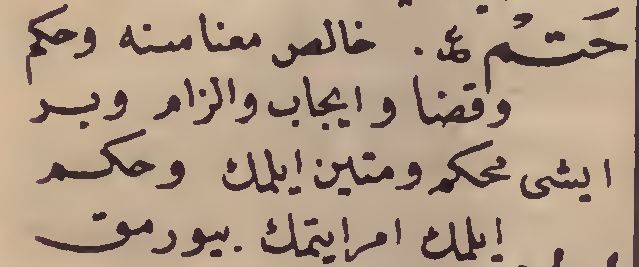 حَتْمٌ ع. خالص معناسنه وحكم
وقضا وايجاب والزام وبر
ايشى محكم ومتين ايلمك وحكم
ايلمك امر ايتمك بيورمق